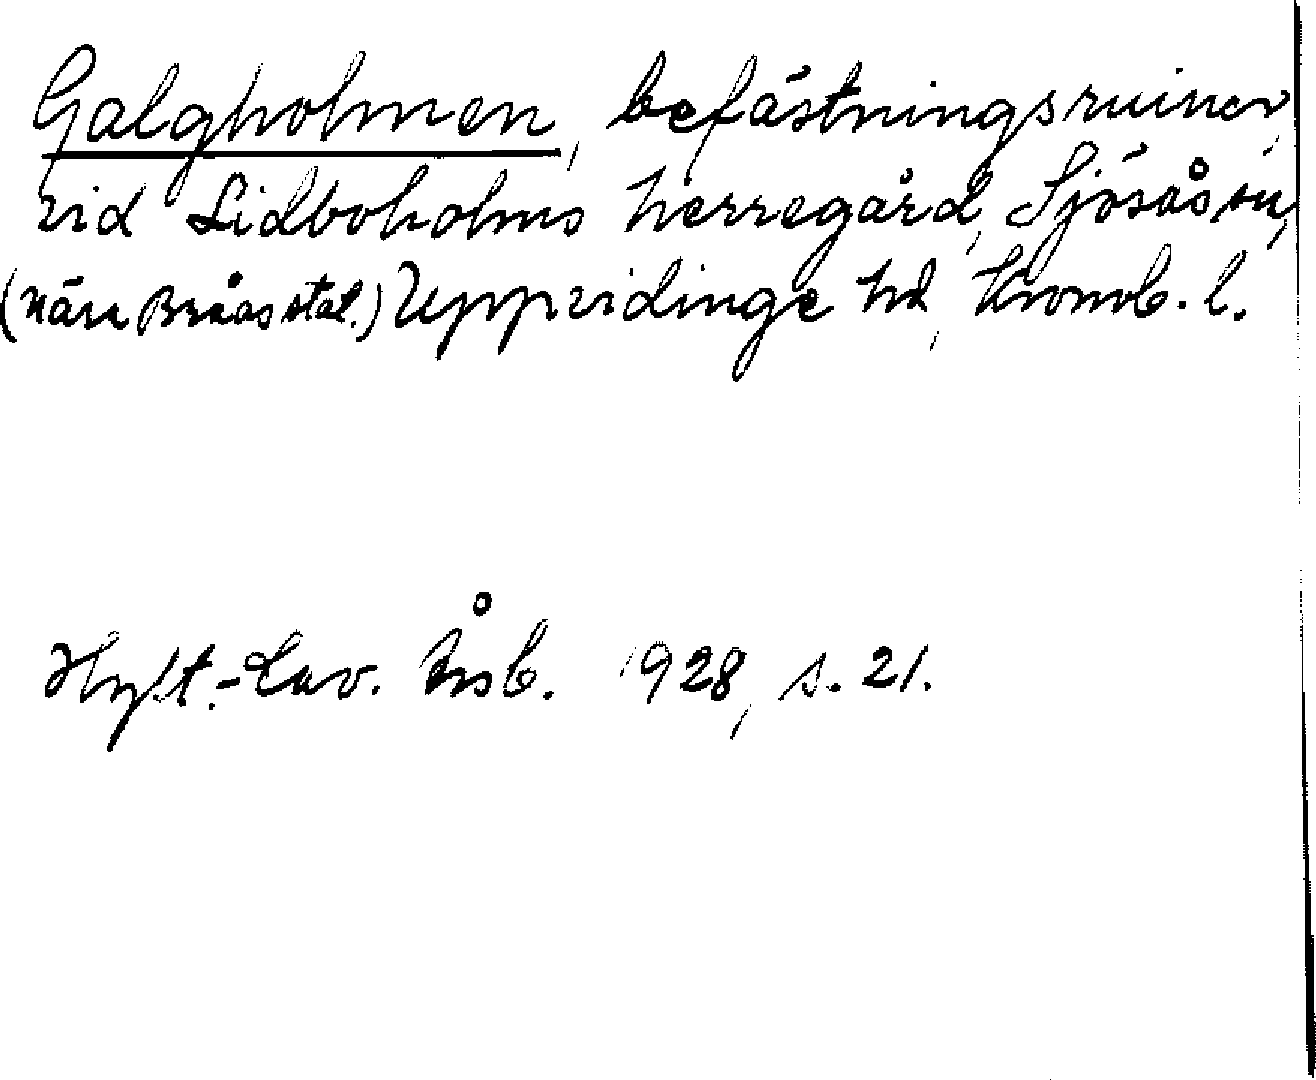 Galgholmen, befästningsruiner,
vid Lidboholms herregård, Sjösås sn,
(nära Braås stat.) Uppvidinge hd, Kronob. l.
Hylt.-Cav. Årsb. 1928, s. 21.